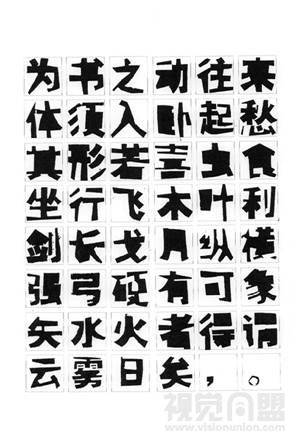 为书之动往来
体须入卧起愁
其形若喜虫食
坐行飞木叶利
剑长戈月纵横
强弓硬有可象
矢水火者得谓
云雾日矣，。
视觉同盟
www.visionunion.com